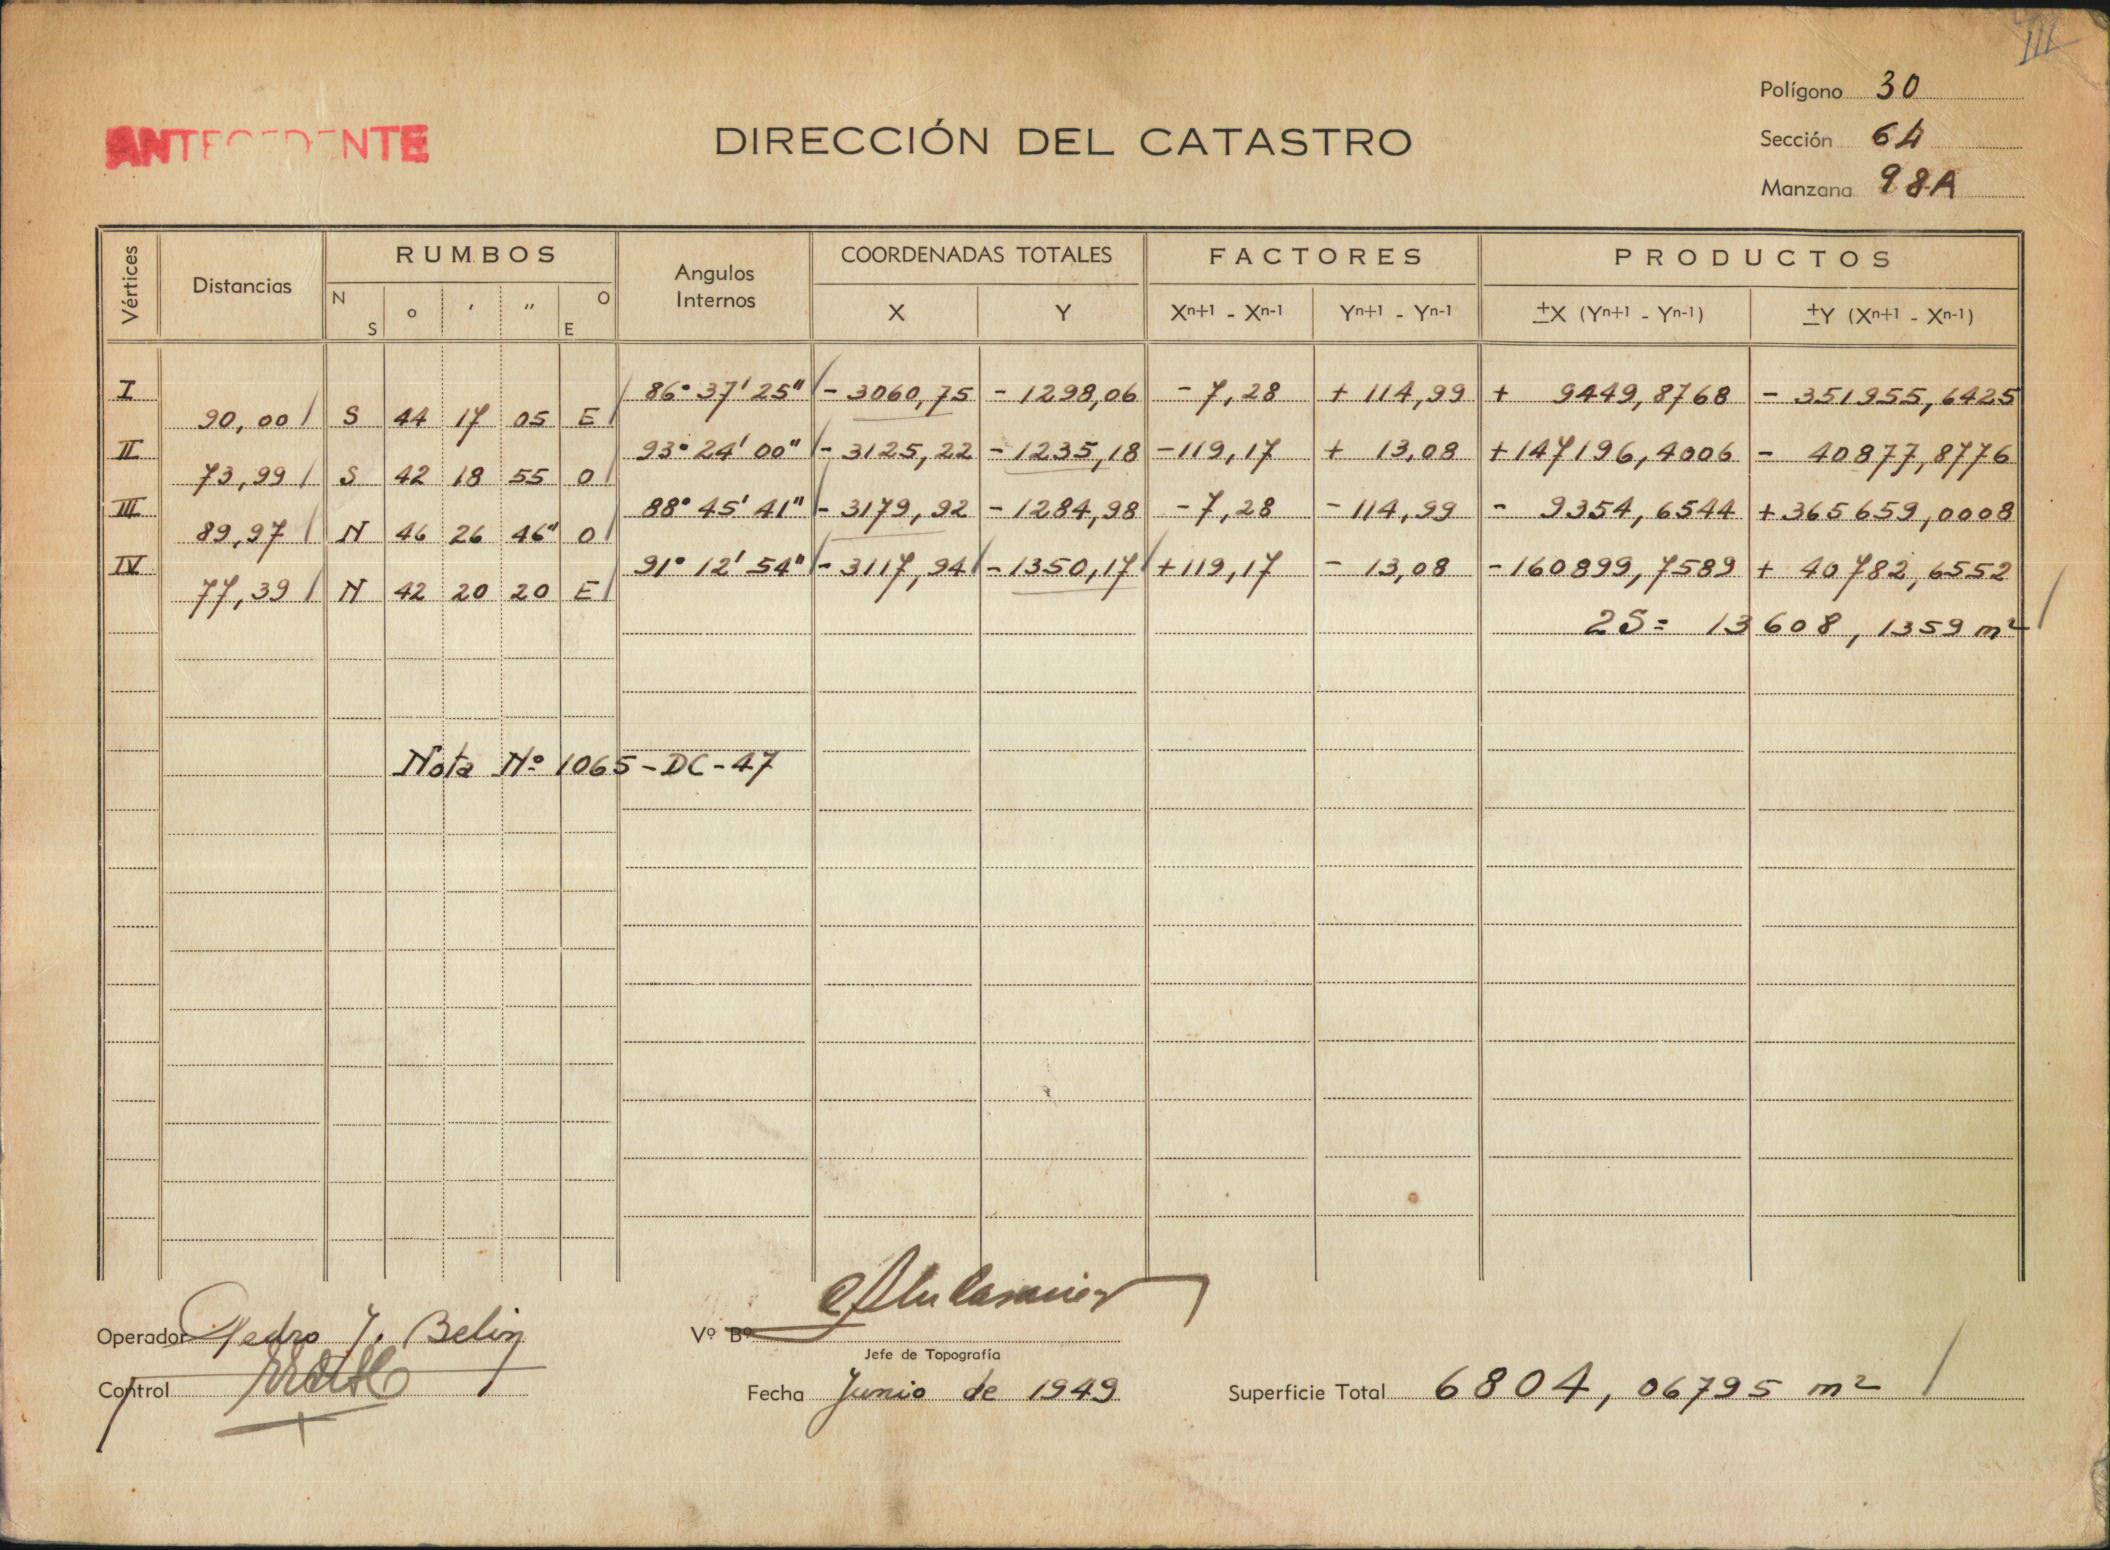 III
Polígono 30
ANTECEDENTE
DIRECCIÓN DEL CATASTRO
Sección 64
Manzana 98A
Vértices Distancias RUMBOS Angulos Internos COORDENADAS TOTALES FACTORES PRODUCTOS
N S ° ' " O E X Y Xⁿ⁺¹ - Xⁿ⁻¹ Yⁿ⁺¹ - Yⁿ⁻¹ ±X (Yⁿ⁺¹ - Yⁿ⁻¹) ±Y (Xⁿ⁺¹ - Xⁿ⁻¹)
I 86° 37' 25" - 3060,75 - 1298,06 - 7,28 + 114,99 + 9449,8768 - 351955,6425
90,00 S 44 17 05 E
II 93° 24' 00" - 3125,22 - 1235,18 - 119,17 + 13,08 + 147196,4006 - 40877,8776
73,99 S 42 18 55 O
III 88° 45' 41" - 3179,92 - 1284,98 - 7,28 - 114,99 - 9354,6544 + 365659,0008
89,97 N 46 26 46" O
IV 91° 12' 54" - 3117,94 - 1350,17 + 119,17 - 13,08 - 160899,7589 + 40782,6552
77,39 N 42 20 20 E
2S = 13608,1359 m²
Nota Nº 1065-DC-47
Operador Pedro J. Belin
Vº Bº
Jefe de Topografía
Control
Fecha Junio de 1949
Superficie Total 6804,06795 m²